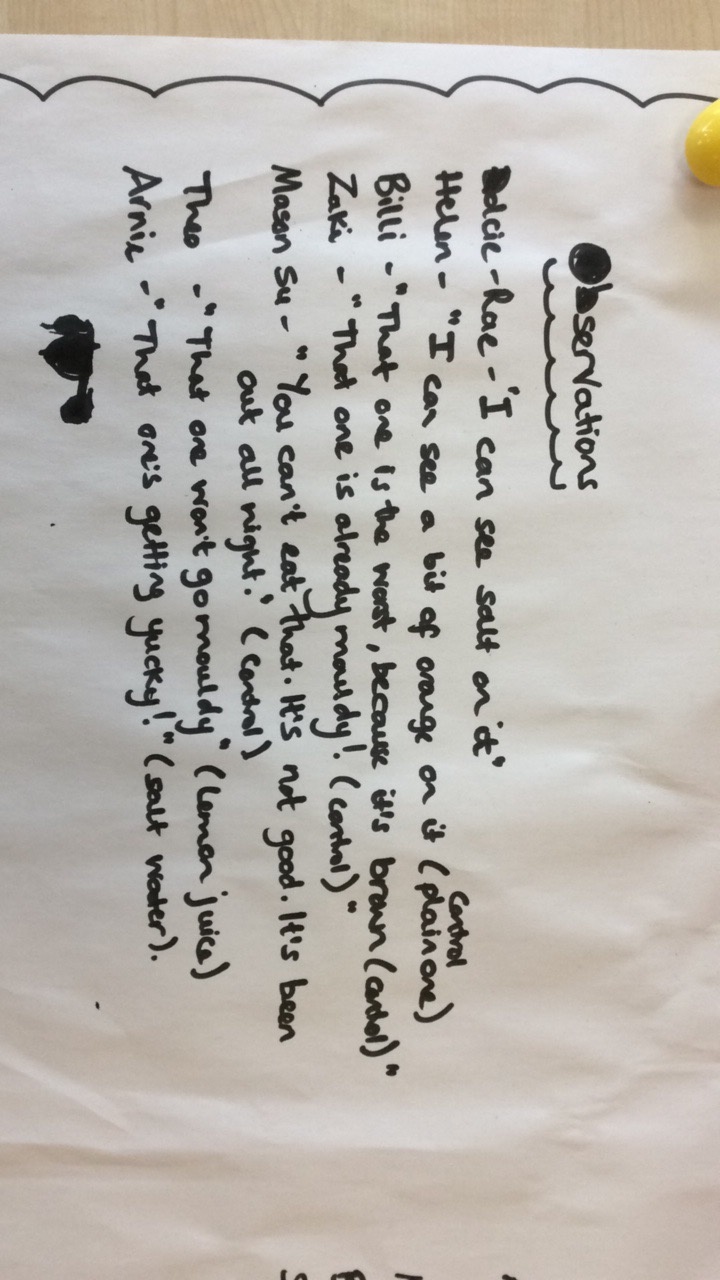 Observations
Edcie-Rae - 'I can see salt on it'
Helen - "I can see a bit of orange on it (plain one)
control
Billi - "That one is the worst, because it's brown (control)"
Zaki - "That one is already mouldy! (control)"
Mason Su - "You can't eat that. It's not good. It's been
out all night.' (control)
Theo - "That one won't go mouldy" (lemon juice)
Arnie - "That one's getting yucky!" (salt water).